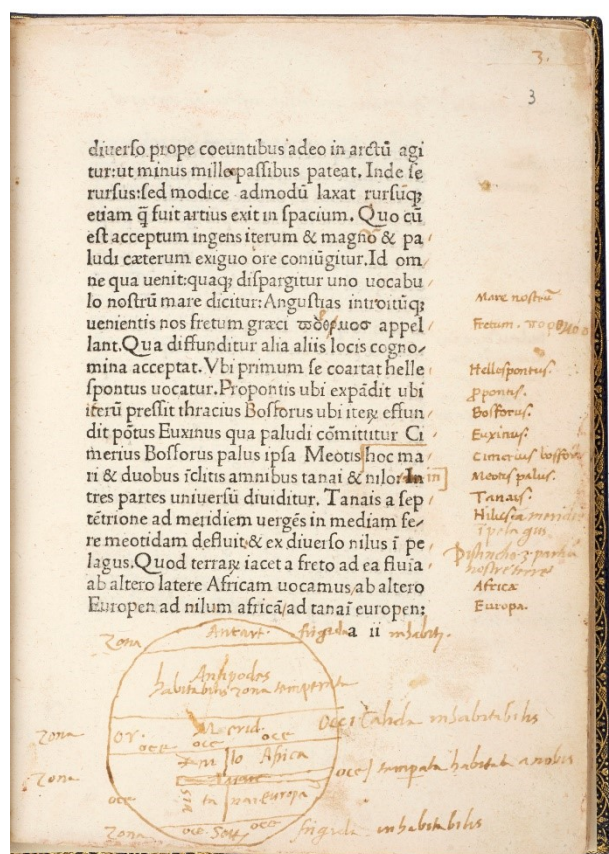 3.
3
diuerso prope coeuntibus adeo in arctũ agi
tur:ut minus mille passibus pateat. Inde se
rursus:sed modice admodũ laxat rursũqꝫ
etiam q̃ fuit artius exit in spacium. Quo cũ
est acceptum ingens iterum & magno & pa
ludi cæterum exiguo ore coniũgitur. Id om
ne qua uenit:quaqꝫ dispargitur uno uocabu
lo nostrũ mare dicitur: Angustias introitũqꝫ
uenientis nos fretum græci appel
lant. Qua diffunditur alia aliis locis cogno-
mina acceptat. Vbi primum se coartat helle
spontus uocatur. Propontis ubi expãdit ubi
iterũ pressit thracius Bosforus ubi iteꝝ effun
dit põtus Euxinus qua paludi cõmittitur Ci
merius Bosforus palus ipsa Meotis hoc ma
ri & duobus ĩclitis amnibus tanai & nilo In
tres partes uniuersũ diuiditur. Tanais a sep
tẽtrione ad meridiem uergẽs in mediam fe-
re meotidam defluit & ex diuerso nilus ĩ pe
lagus. Quod terraꝝ iacet a freto ad ea fluĩa
ab altero latere Africam uocamus, ab altero
Europen ad nilum africã/ad tanaĩ europen:
a ii
Mare nostrũ
Fretum.
Hellespontus.
ꝓpontis.
Bosforus.
Euxinus.
Cimerius bosforus
in
Meotis palus.
Tanais.
Nilus a meridie
ĩ pelagus
Distinctio 3 partiũ
nostre terre
Africa
Europa.
Zona Antart. frigida inhabit.
Antipodes
habitabilis zona temperata
Zona or. Merid. occi Calida inhabitabilis
oce oce oce
Zona ni lo Africa oce temp̃ata habitata a nobis
oce ta nai europa
Zona oce Sept. oce frigida inhabitabilis